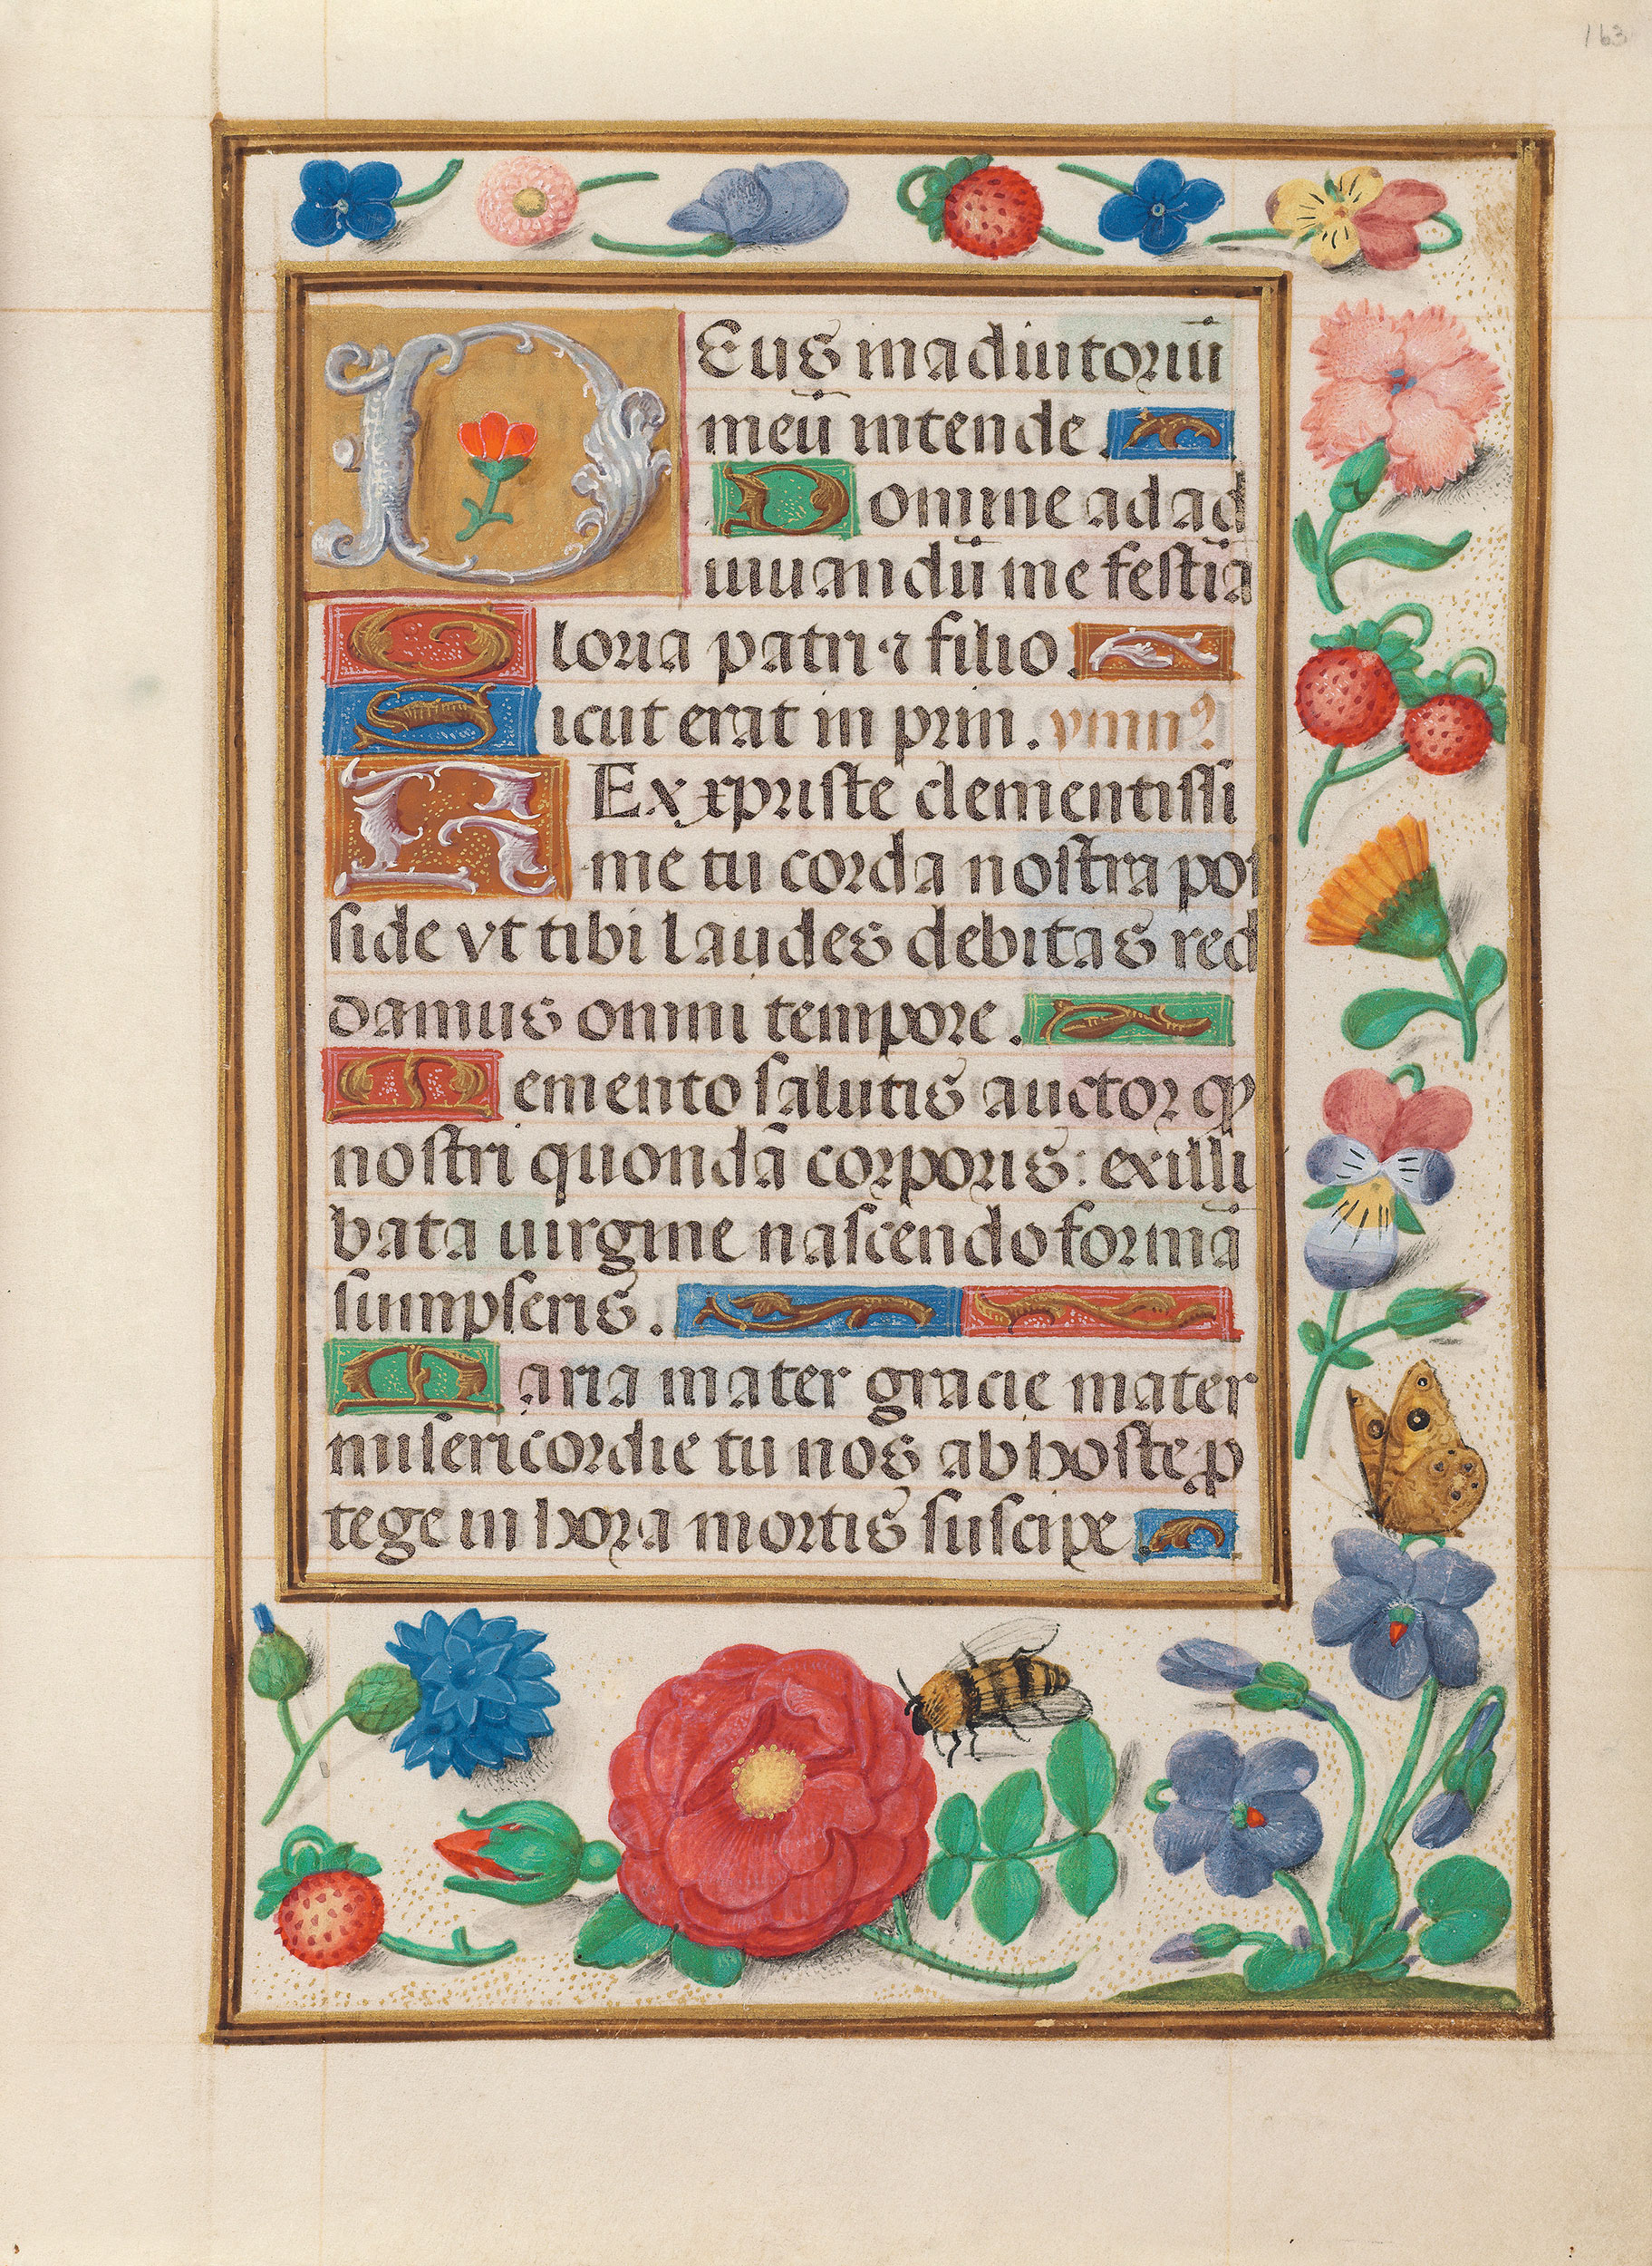 163
DEus in adiutoriū
meū intende.
Domine ad ad
iuuandū me festīa
Gloria patri ⁊ filio.
Sicut erat in prin. ymnꝰ
REx xpriste clementissi
me tu corda nostra pos
side vt tibi laudes debitas red
damus omni tempore.
Memento salutis auctor ꝙ
nostri quondā corporis: ex illi
bata uirgine nascendo formā
sumpseris.
Maria mater gracie mater
misericordie tu nos ab hoste ꝓ
tege in hora mortis suscipe.